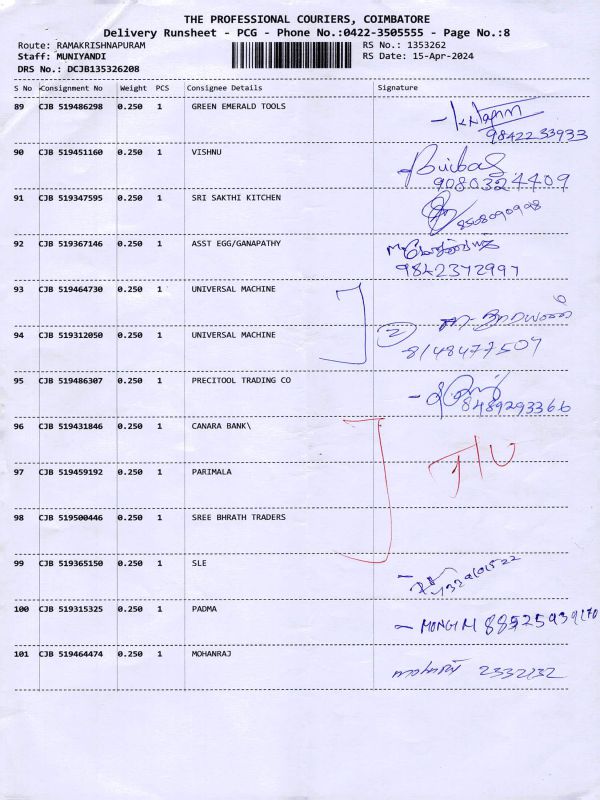 THE PROFESSIONAL COURIERS, COIMBATORE
Delivery Runsheet - PCG - Phone No.:0422-3505555 - Page No.:8
Route: RAMAKRISHNAPURAM RS No.: 1353262
Staff: MUNIYANDI RS Date: 15-Apr-2024
DRS No.: DCJB135326208
S No Consignment No Weight PCS Consignee Details Signature
89 CJB 519486298 0.250 1 GREEN EMERALD TOOLS
98422 33933
90 CJB 519451160 0.250 1 VISHNU
9080324409
91 CJB 519347595 0.250 1 SRI SAKTHI KITCHEN
92 CJB 519367146 0.250 1 ASST EGG/GANAPATHY
9842372997
93 CJB 519464730 0.250 1 UNIVERSAL MACHINE
94 CJB 519312050 0.250 1 UNIVERSAL MACHINE
2
8148477507
95 CJB 519486307 0.250 1 PRECITOOL TRADING CO
8489293366
96 CJB 519431846 0.250 1 CANARA BANK\
97 CJB 519459192 0.250 1 PARIMALA
98 CJB 519500446 0.250 1 SREE BHRATH TRADERS
99 CJB 519365150 0.250 1 SLE
100 CJB 519315325 0.250 1 PADMA
101 CJB 519464474 0.250 1 MOHANRAJ
2332132